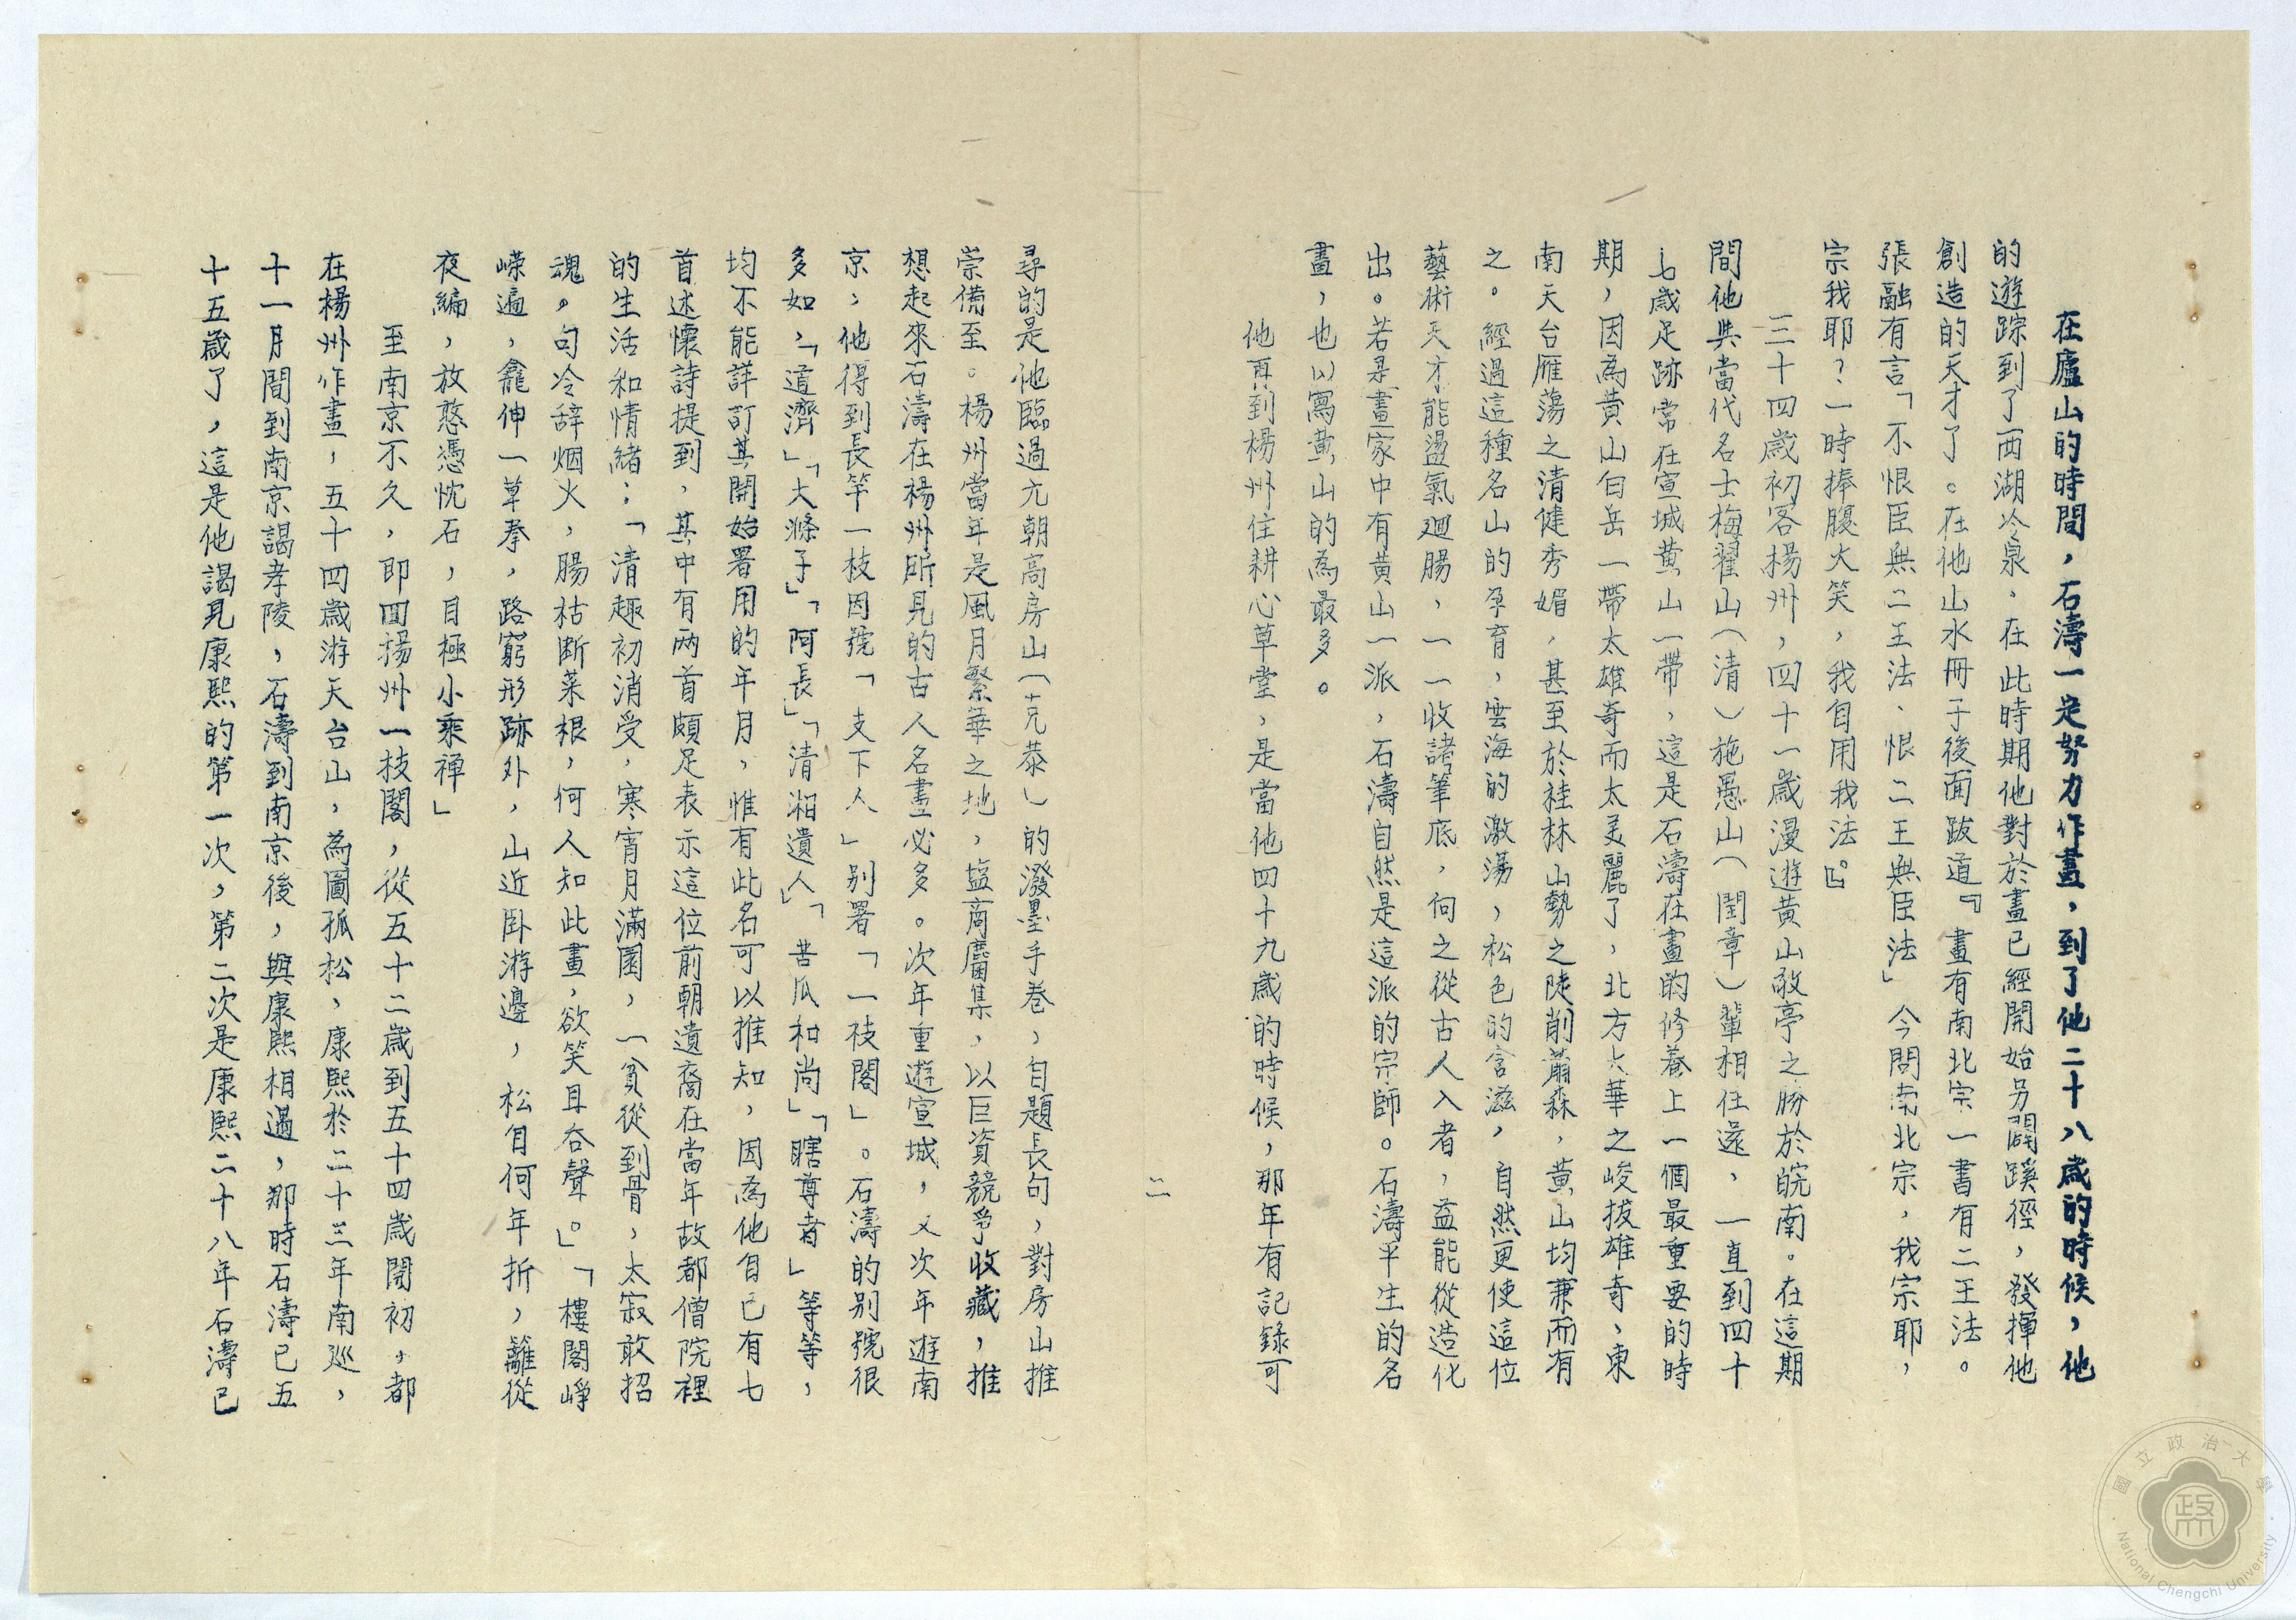 在廬山的時間，石濤一定努力作畫，到了他二十八歲的時候，他
的遊踪到了西湖冷泉．在此時期他對於畫已經開始另闢蹊徑，發揮他
創造的天才了。在他山水冊子後面跋道『畫有南北宗一書有二王法。
張融有言「不恨臣無二王法、恨二王無臣法」今問南北宗，我宗耶，
宗我耶？一時捧腹大笑，我自用我法』。
三十四歲初客楊州，四十一歲漫遊黃山敬亭之勝於皖南。在這期
間他與當代名士梅瞿山（清）施愚山（閏章）輩相往還，一直到四十
七歲足跡常在宣城黃山一帶，這是石濤在畫的修養上一個最重要的時
期，因為黃山白岳一帶太雄奇而太美麗了，北方太華之峻拔雄奇、東
南天台雁蕩之清健秀媚，甚至於桂林山勢之陡削蕭森，黃山均兼而有
之。經過這種名山的孕育，雲海的激蕩，松色的含滋，自然更使這位
藝術天才能盪氣廻腸，一一收諸筆底，向之從古人入者，益能從造化
出。若是畫家中有黃山一派，石濤自然是這派的宗師。石濤平生的名
畫，也以寫黃山的為最多。
他再到楊州住耕心草堂，是當他四十九歲的時候，那年有記錄可
二
尋的是他臨過亢朝高房山（克恭）的潑墨手卷，自題長句，對房山推
崇備至。楊州當年是風月繁華之地，塩商麕集，以巨資競爭收藏，推
想起來石濤在楊州所見的古人名畫必多。次年重遊宣城，又次年遊南
京；他得到長竿一枝因號「支下人」別署「一枝閣」。石濤的別號很
多如，「道濟」「大滌子」「阿長」「清湘遺人」「苦瓜和尚」「瞎尊者」等等，
均不能詳訂其開始署用的年月，惟有此名可以推知，因為他自己有七
首述懷詩提到，其中有两首頗足表示這位前朝遺裔在當年故都僧院裡
的生活和情緒：「清趣初消受，寒宵月滿園，一貧從到骨，太寂敢招
魂。句冷辞烟火，腸枯断菜根，何人知此畫，欲笑且吞聲。」「樓閣崢
嶸遍，龕伸一草拳，路窮形跡外，山近卧游邊，松自何年折，籬從
夜編，放憨憑忱石，目極小乘禅」
至南京不久，即囬揚州一枝閣，從五十二歲到五十四歲開初，都
在楊州作畫，五十四歲游天台山，為圖孤松，康熙於二十三年南巡，
十一月間到南京謁孝陵，石濤到南京後，與康熙相遇，那時石濤已五
十五歲了，這是他謁見康熙的第一次，第二次是康熙二十八年石濤已
國立政治大學
National Chengchi University